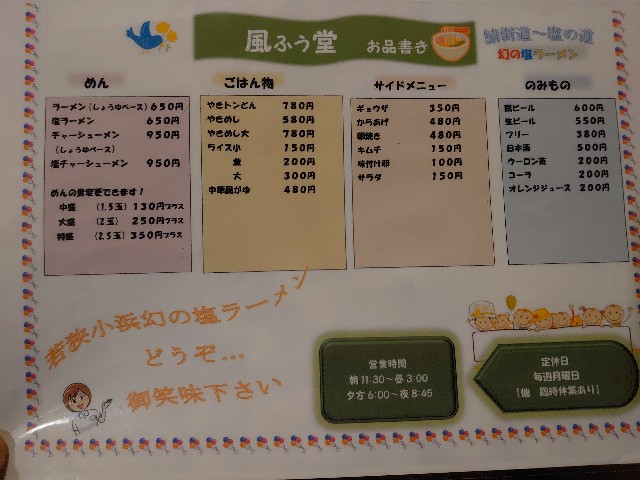 風ふう堂 お品書き
鯖街道～塩の道
幻の塩ラーメン
めん
ラーメン(しょうゆベース) 650円
塩ラーメン 650円
チャーシューメン 950円
(しょうゆベース)
塩チャーシューメン 950円
めんの量変更できます!
中盛 (1.5玉) 130円プラス
大盛 (2玉) 250円プラス
特盛 (2.5玉) 350円プラス
ごはん物
やきトンどん 780円
やきめし 580円
やきめし大 780円
ライス小 150円
並 200円
大 300円
中華風がゆ 480円
サイドメニュー
ギョウザ 350円
からあげ 480円
卵焼き 480円
キムチ 150円
味付け卵 100円
サラダ 150円
のみもの
瓶ビール 600円
生ビール 550円
フリー 380円
日本酒 500円
ウーロン茶 200円
コーラ 200円
オレンジジュース 200円
若狭小浜幻の塩ラーメン
どうぞ…
御笑味下さい
営業時間
朝11:30～昼3:00
夕方6:00～夜8:45
定休日
毎週月曜日
(他 臨時休業あり)